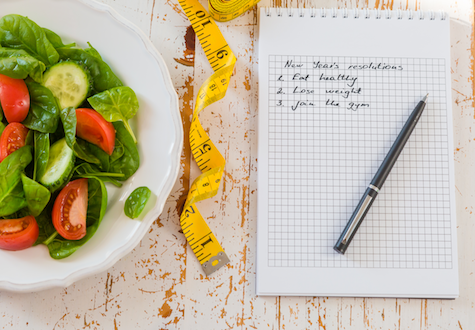 New Year's resolutions
1. Eat healthy
2. Lose weight
3. Join the gym